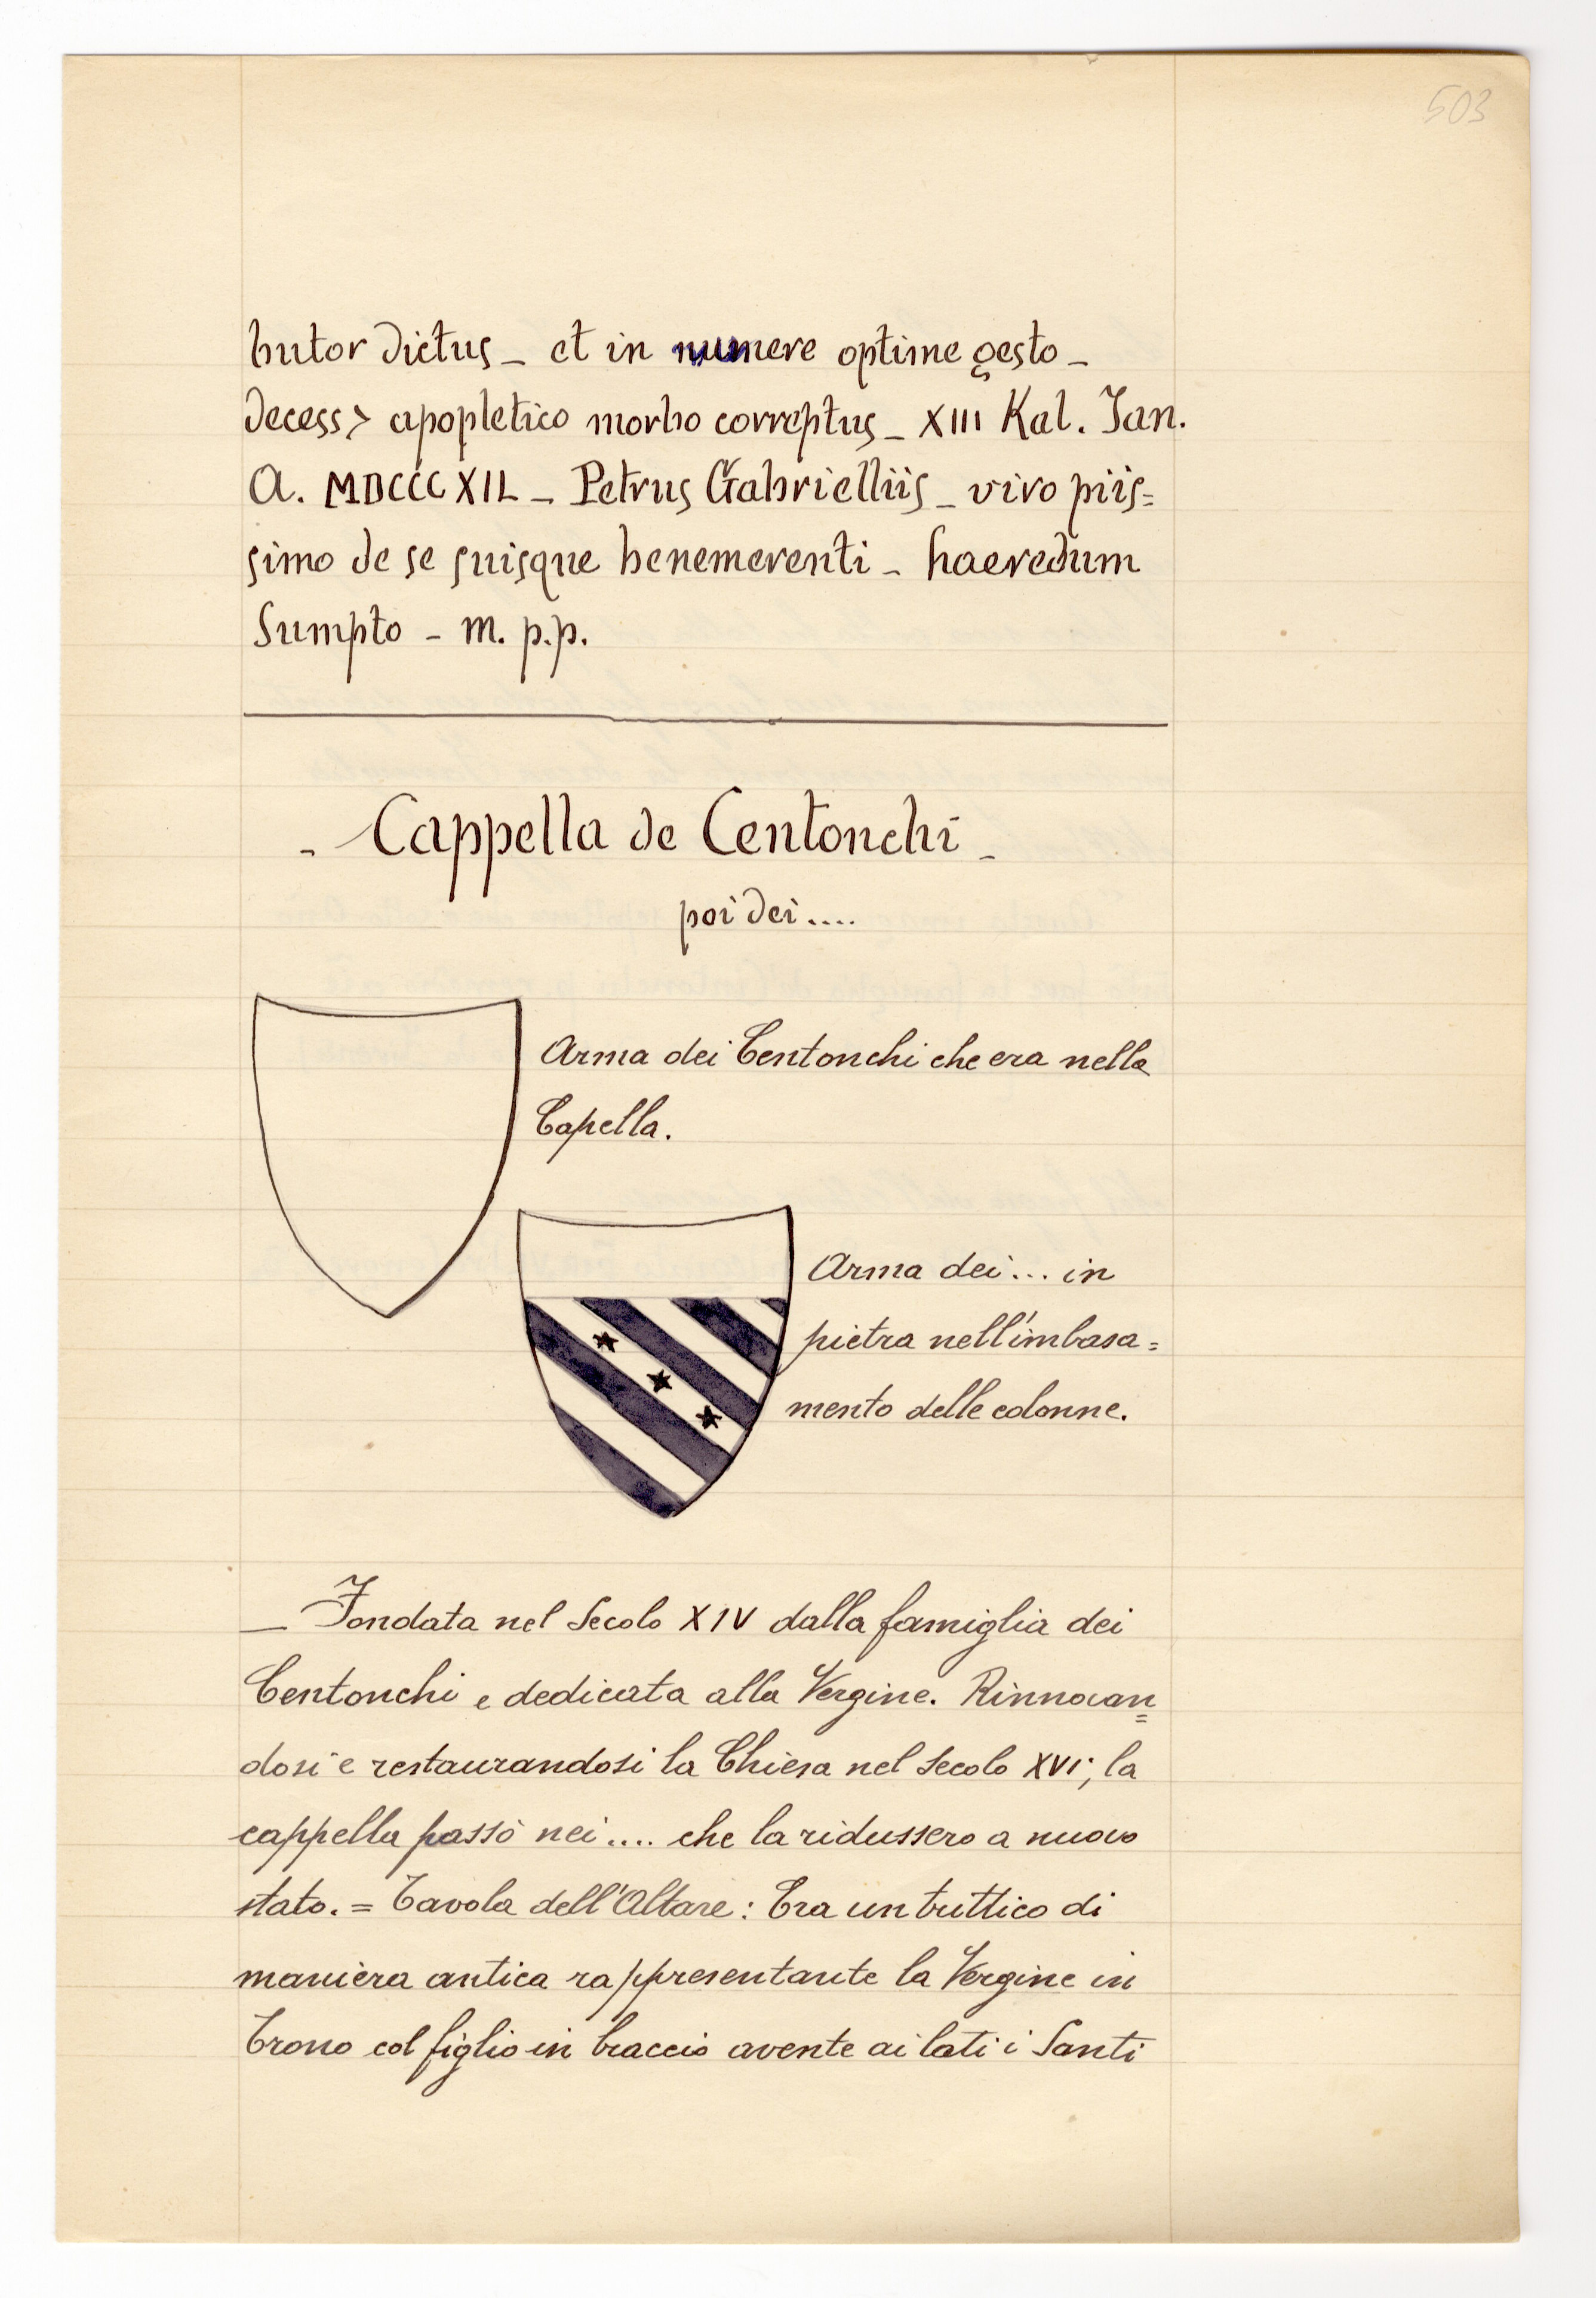 503
butor dictus _ et in munere optime gesto _
decess> apopletico morbo correptus _ XIII Kal. Jan.
A. MDCCCXIL _ Petrus Gabrielliis _ viro piis=
simo de se suisque benemerenti _ haeredum
Sumpto _ m. p.p.
_ Cappella de Centonchi _
poi dei ....
Arma dei Centonchi che era nella
Capella.
Arma dei ... in
pietra nell'imbasa=
mento delle colonne.
_ Fondata nel Secolo XIV dalla famiglia dei
Centonchi e dedicata alla Vergine. Rinnovan=
dosi e restaurandosi la Chiesa nel Secolo XVI; la
cappella passò nei .... che la ridussero a nuovo
stato. = Tavola dell'Altare: Era un trittico di
maniera antica rappresentante la Vergine in
Trono col figlio in braccio avente ai lati i Santi